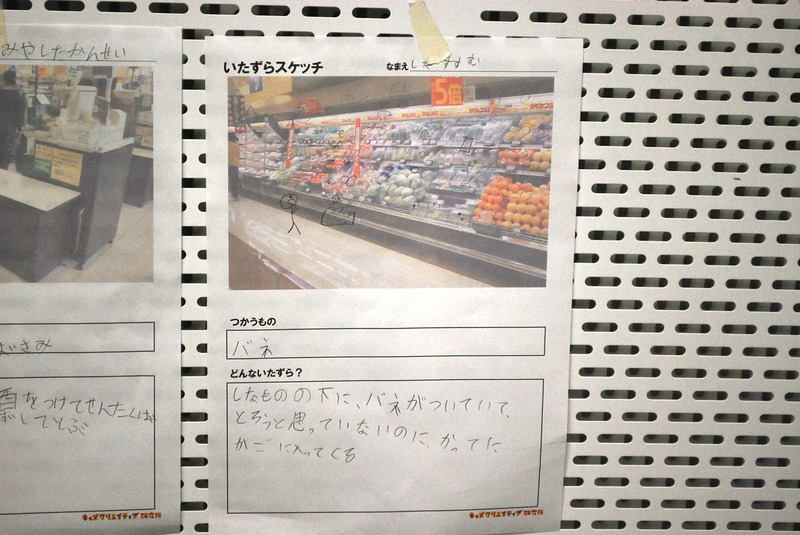 みやしたかんせい
ばさみ
酉をつけてせんたくば
ずしてとぶ
キッズクリエイティブ研究所
いたずらスケッチ
なまえ
5倍
つかうもの
バネ
どんないたずら？
しなものの下に、バネがついていて、
とろうと思っていないのに、かってに
かごに入ってくる
キッズクリエイティブ研究所